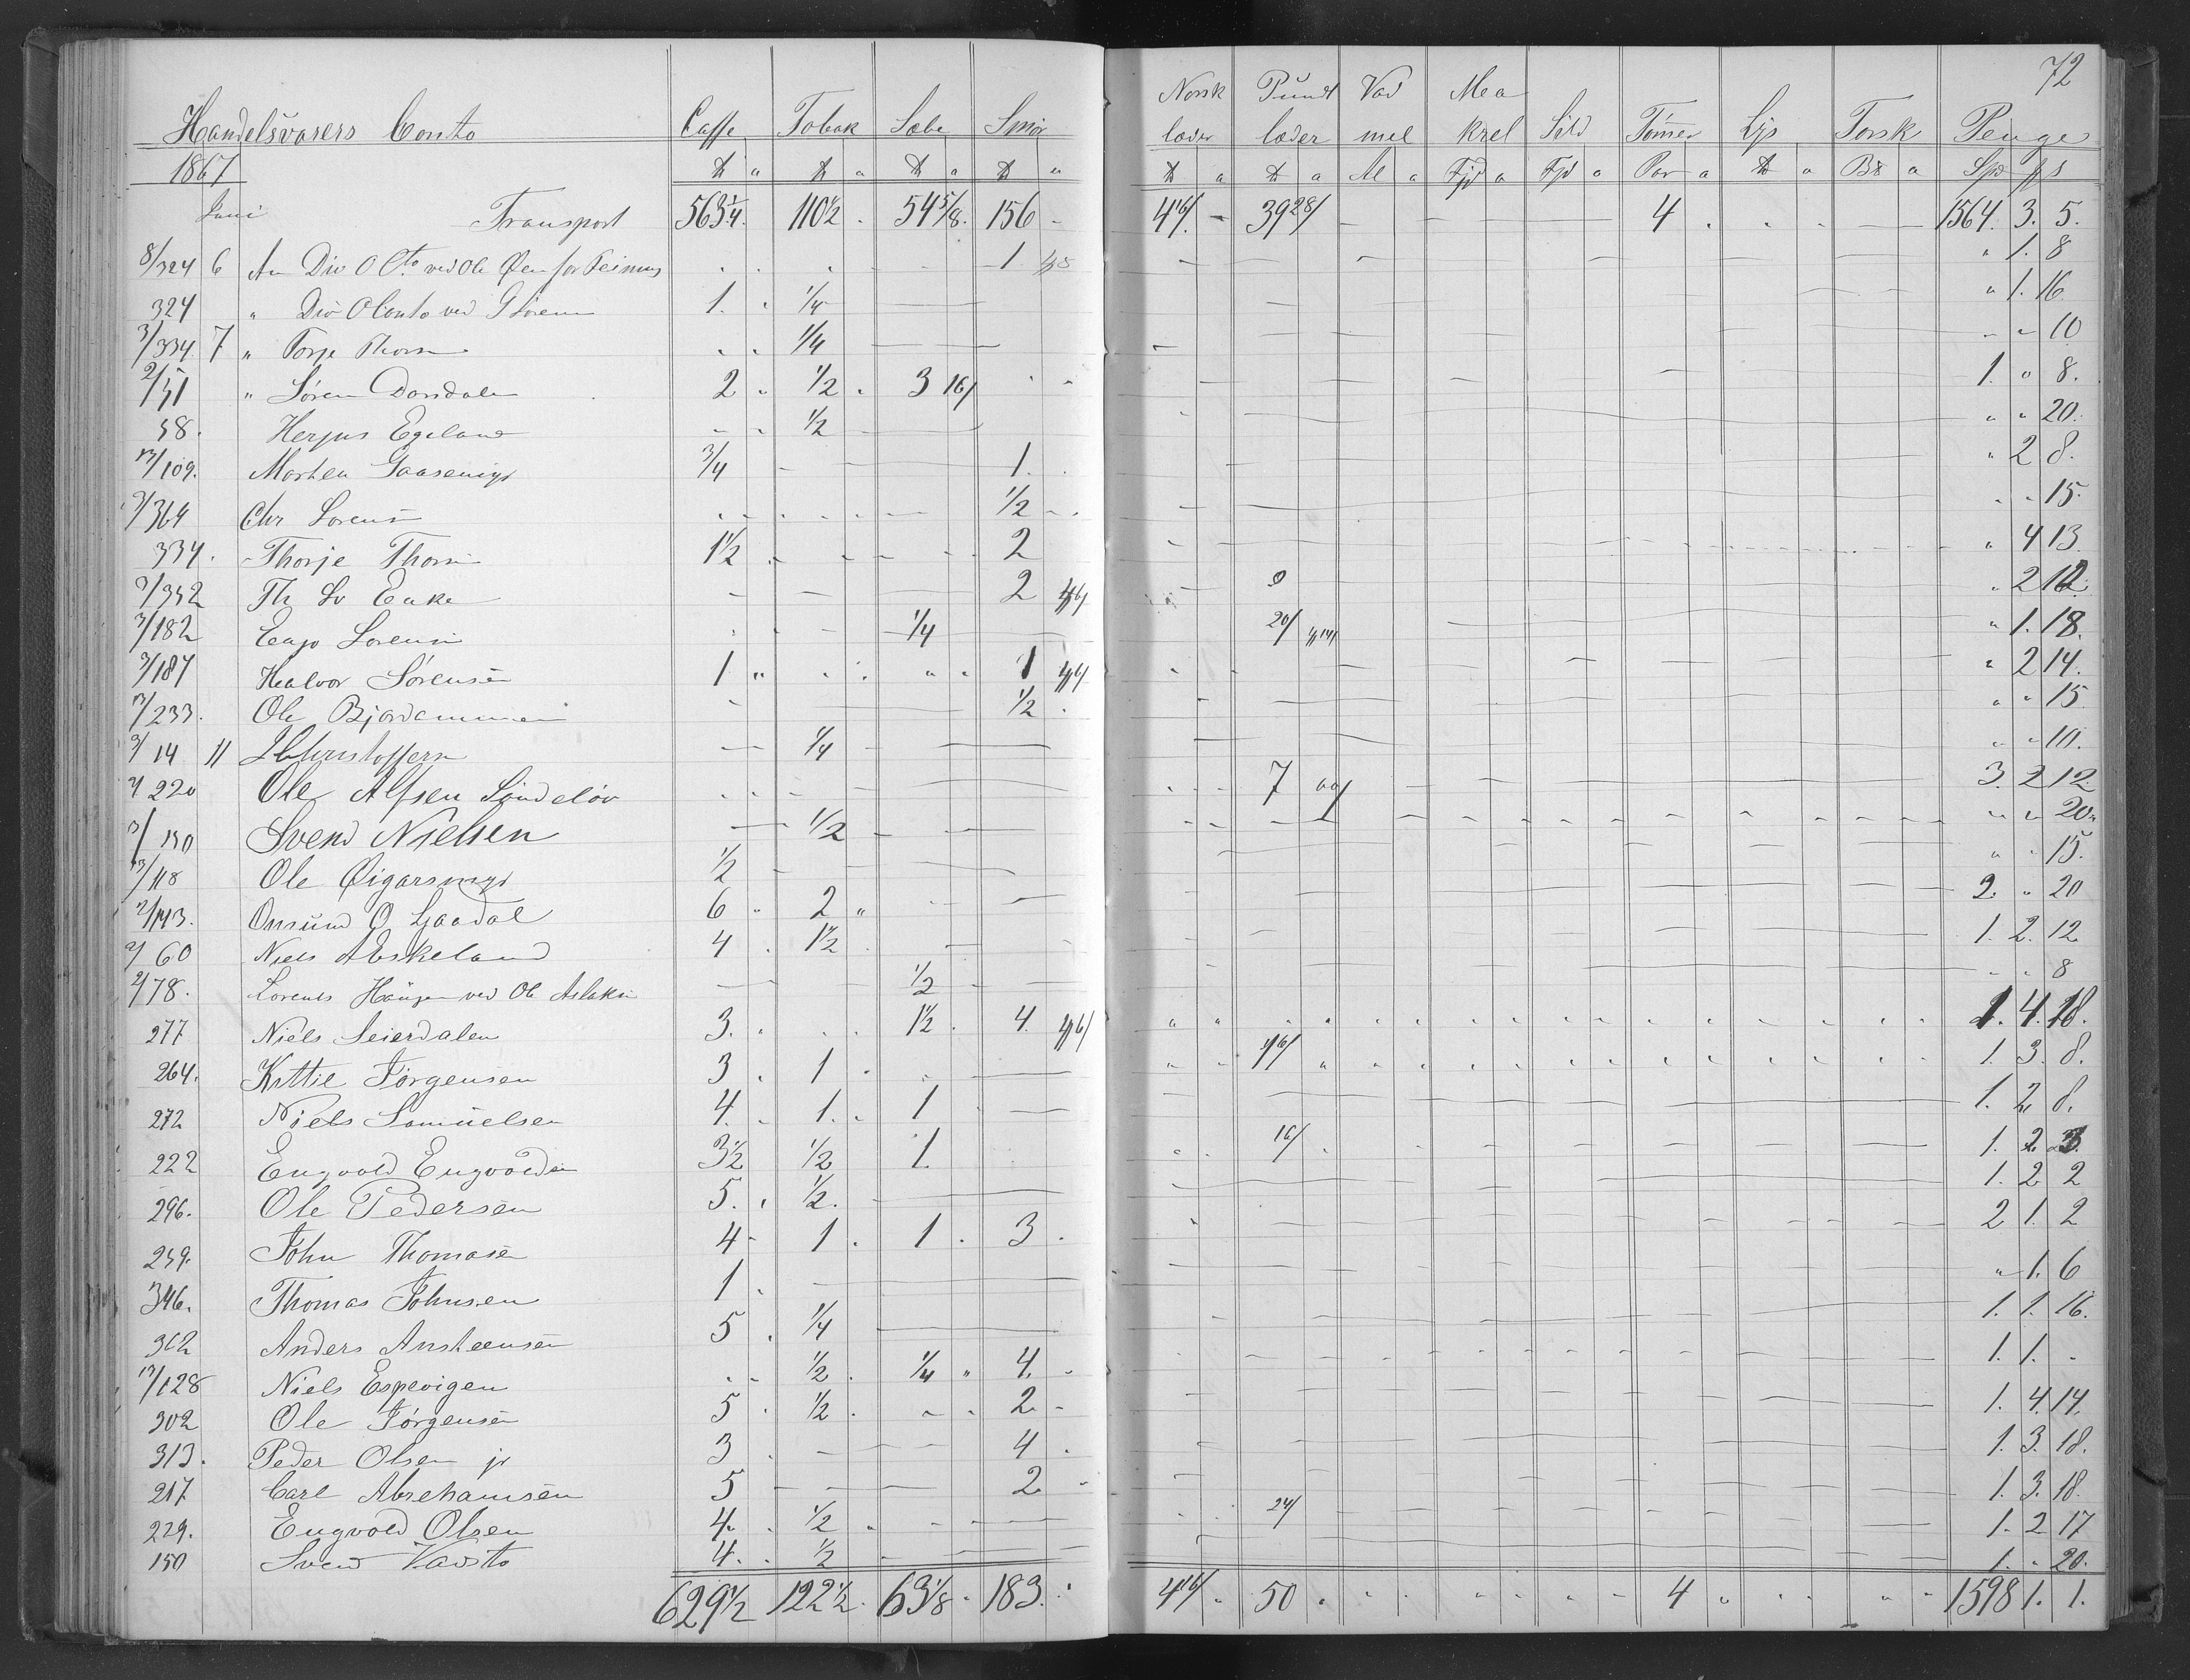 72
Handelsvarers Conto Caffe Tobak Sæbe Smør Norsk læder Pundt læder Vad mel Mea krel Sild Tømer Lys Torsk Penge
1867 ℔ " ℔ " ℔ " ℔ " ℔ " ℔ " Al " Fjd " Fjd " Par " ℔ " Bs " Spd
Juni Transport 563 1/4 110 1/2 54 5/8 156 - 4 16/ - 39 28/ 4 1564. 3. 5.
8/324 6 An Div O Cto ved Ole Øen for 1 " 1. 8
324 " Div O Conto ved 1. 1/4 " 1. 16
3/334 7 " Torje Thorsen 1/4 " " 10
2/51 " Søren Dorsdalen 2 1/2 3 16/ 1. " 8.
58. Herjus Egeland 1/2 " " 20.
13/109. Morten Gaasemyr 3/4 1. " 2 8.
3/364 Chr Lorens 1/2 " " 15.
334. Thorje Thorsen 1 1/2 2 " 4 13
3/352 Th Eeke 2 " 2 12.
3/182 Lorensen 1/4 20/ " 1. 18.
3/187 Halvor Sørensen 1 1 " 2 14.
13/233. Ole 1/2 " " 15
3/14 11 Christoffersen 1/4 " " 10.
3/220 Ole Alfsen 7 3. 2 12
3/150 Svend Nielsen 1/2 " " 20"
13/118 Ole Øigarsmyr 1/2 " " 15.
2/143. Onsund O Ljaadal 6 2 2. " 20
2/60 Niels Abskeland 4 1 1/2 1. 2. 12
2/78. Lorents Haugen ved Ole Aslaksen 1/2 " " 8
277 Niels Seierdalen 3. 1 1/2 4. 1. 4. 18.
264. Kittil Jørgensen 3 1 1. 3. 8.
272 Niels Samuelsen 4. 1. 1 1. 2. 8.
222 Engvold Engvoldsen 3 1/2 1/2 1 16/ 1. 2 3.
296. Ole Pedersen 5. 1/2. 1. 2 2
259. John Thomasen 4 1 1 3 2 1. 2
346. Thomas Johnsen 1 " 1. 6
362 Anders Ansteensen 5 1/4 1. 1. 16.
13/128 Niels Espevigen 1/2 1/4 4. 1. 1. -
302 Ole Jørgensen 5 1/2 2 1. 4. 14.
313. Peder Olsen jr 3 4 1. 3. 18.
217 Carl Abrehamsen 5 2 1. 3. 18.
229. Engvold Olsen 4. 1/2 24/ 1. 2 17
150 Svend Vadsto 4. 1/2 1. " 20.
629 1/2 122 1/2 63 1/8 183. 4 16/ 50 4 1598 1. 1.